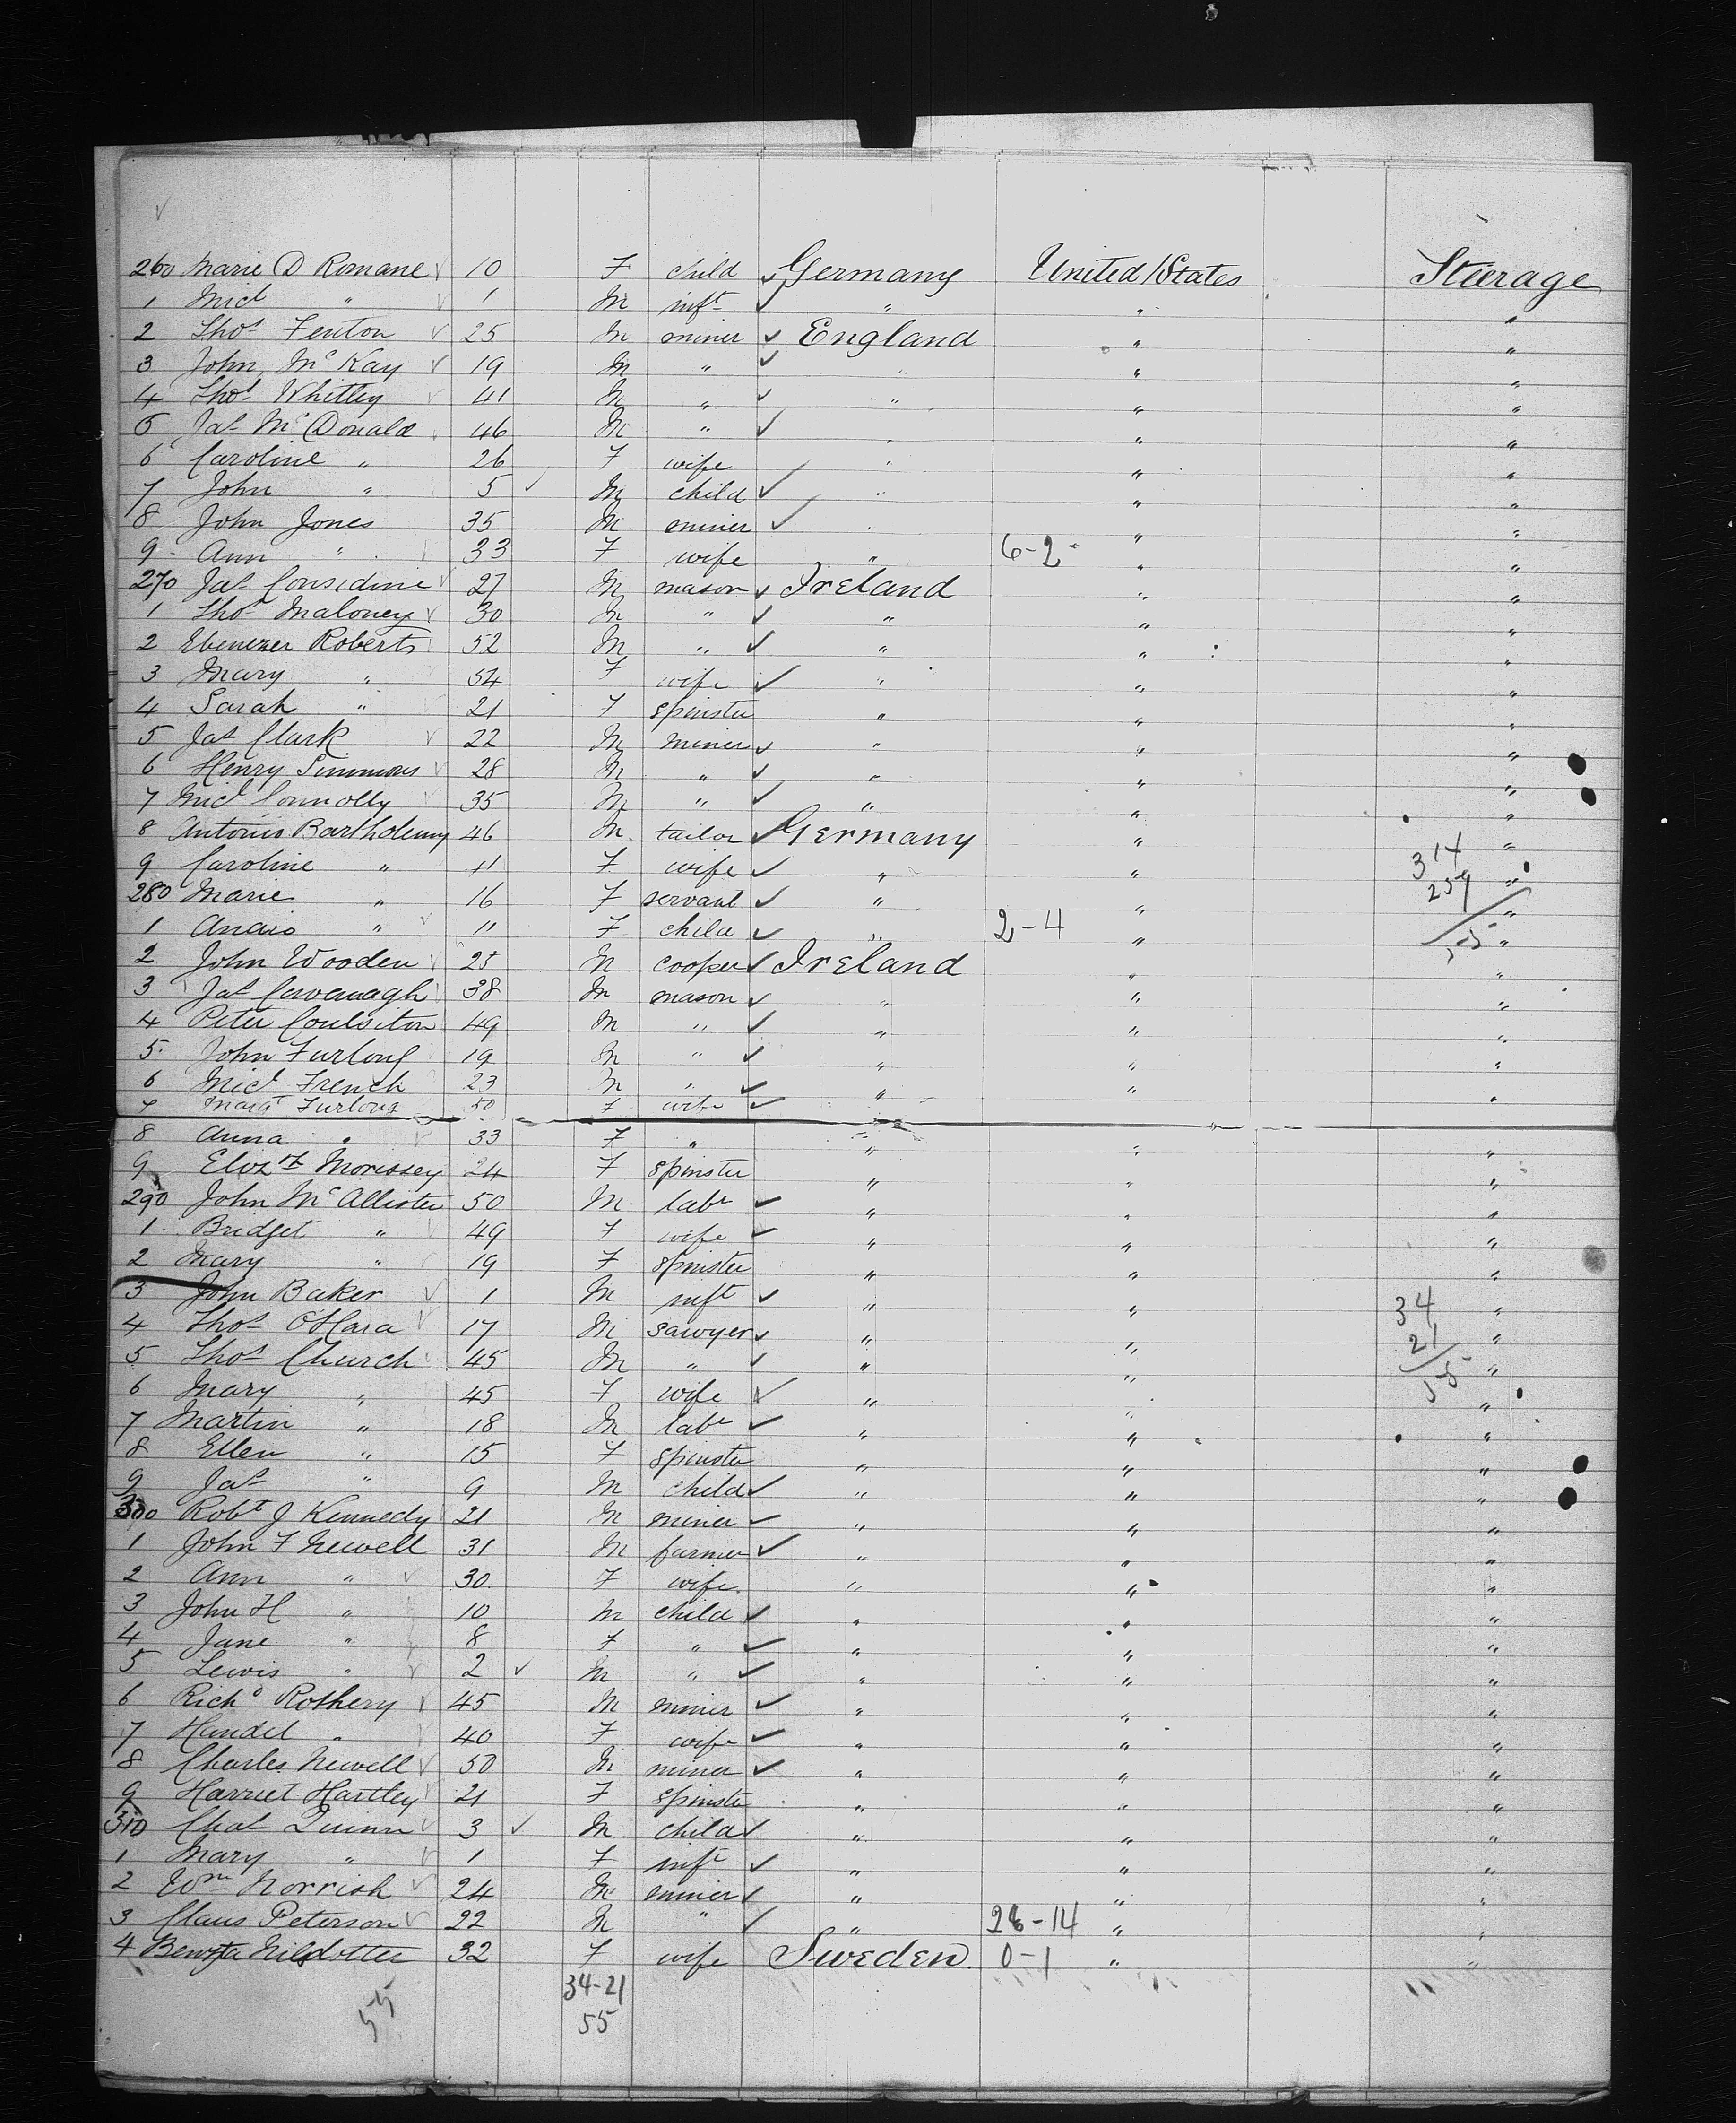 260 Marie D Romane 10 F child Germany United States Steerage
1 Micl " 1 M inft " " "
2 Thos Fenton 25 M miner England " "
3 John McKay 19 M " " " "
4 Thos Whitley 41 M " " " "
5 Jas McDonald 46 M " " " "
6 Caroline " 26 F wife " " "
7 John " 5 M child " " "
8 John Jones 35 M miner " " "
9 Ann " 33 F wife " 6-2 " "
270 Jas Considine 27 M mason Ireland " "
1 Thos Maloney 30 M " " " "
2 Ebenezer Roberts 52 M " " " "
3 Mary " 54 F wife " " "
4 Sarah " 21 F spinster " " "
5 Jas Clark 22 M miner " " "
6 Henry Simmons 28 M " " " "
7 Micl Connolly 35 M " " " "
8 Antonio Bartholemy 46 M tailor Germany " "
9 Caroline " 41 F wife " " 314 "
280 Marie " 16 F servant " " 259 "
1 " 11 F child " 2-4 " 55 "
2 John Wooden 25 M cooper Ireland " "
3 Jas Cavanagh 38 M mason " " "
4 Peter Coulston 49 M " " " "
5 John Furlong 19 M " " " "
6 Micl French 23 M " " " "
7 Margt Furlong 50 F wife "
8 Anna " 33 F " " " "
9 Elizth Morissey 24 F spinster " " "
290 John McAllister 50 M labr " " "
1 Bridget " 49 F wife " " "
2 Mary " 19 F spinster " " "
3 John Baker 1 M inft " " 34 "
4 Thos O'Hara 17 M sawyer " " 21 "
5 Thos Church 45 M " " " 55 "
6 Mary " 45 F wife " " "
7 Martin " 18 M labr " " "
8 Ellen " 15 F spinster " " "
9 Jas " 9 M child " " "
300 Robt J Kennedy 21 M miner " " "
1 John F Newell 31 M farmer " " "
2 Ann " 30 F wife " " "
3 John H " 10 M child " " "
4 Jane " 8 F " " " "
5 Lewis " 2 M " " " "
6 Richd Rothery 45 M miner " " "
7 " 40 F wife " " "
8 Charles Newell 50 M miner " " "
9 Harriet Hartley 21 F spinster " " "
310 Chas Quinn 3 M child " " "
1 Mary " 1 F inft " " "
2 Wm Norrish 24 M miner " " "
3 Claus Peterson 22 M " " 26-14 " "
4 Nilsdotter 32 F wife Sweden 0-1 " "
34-21
55 55